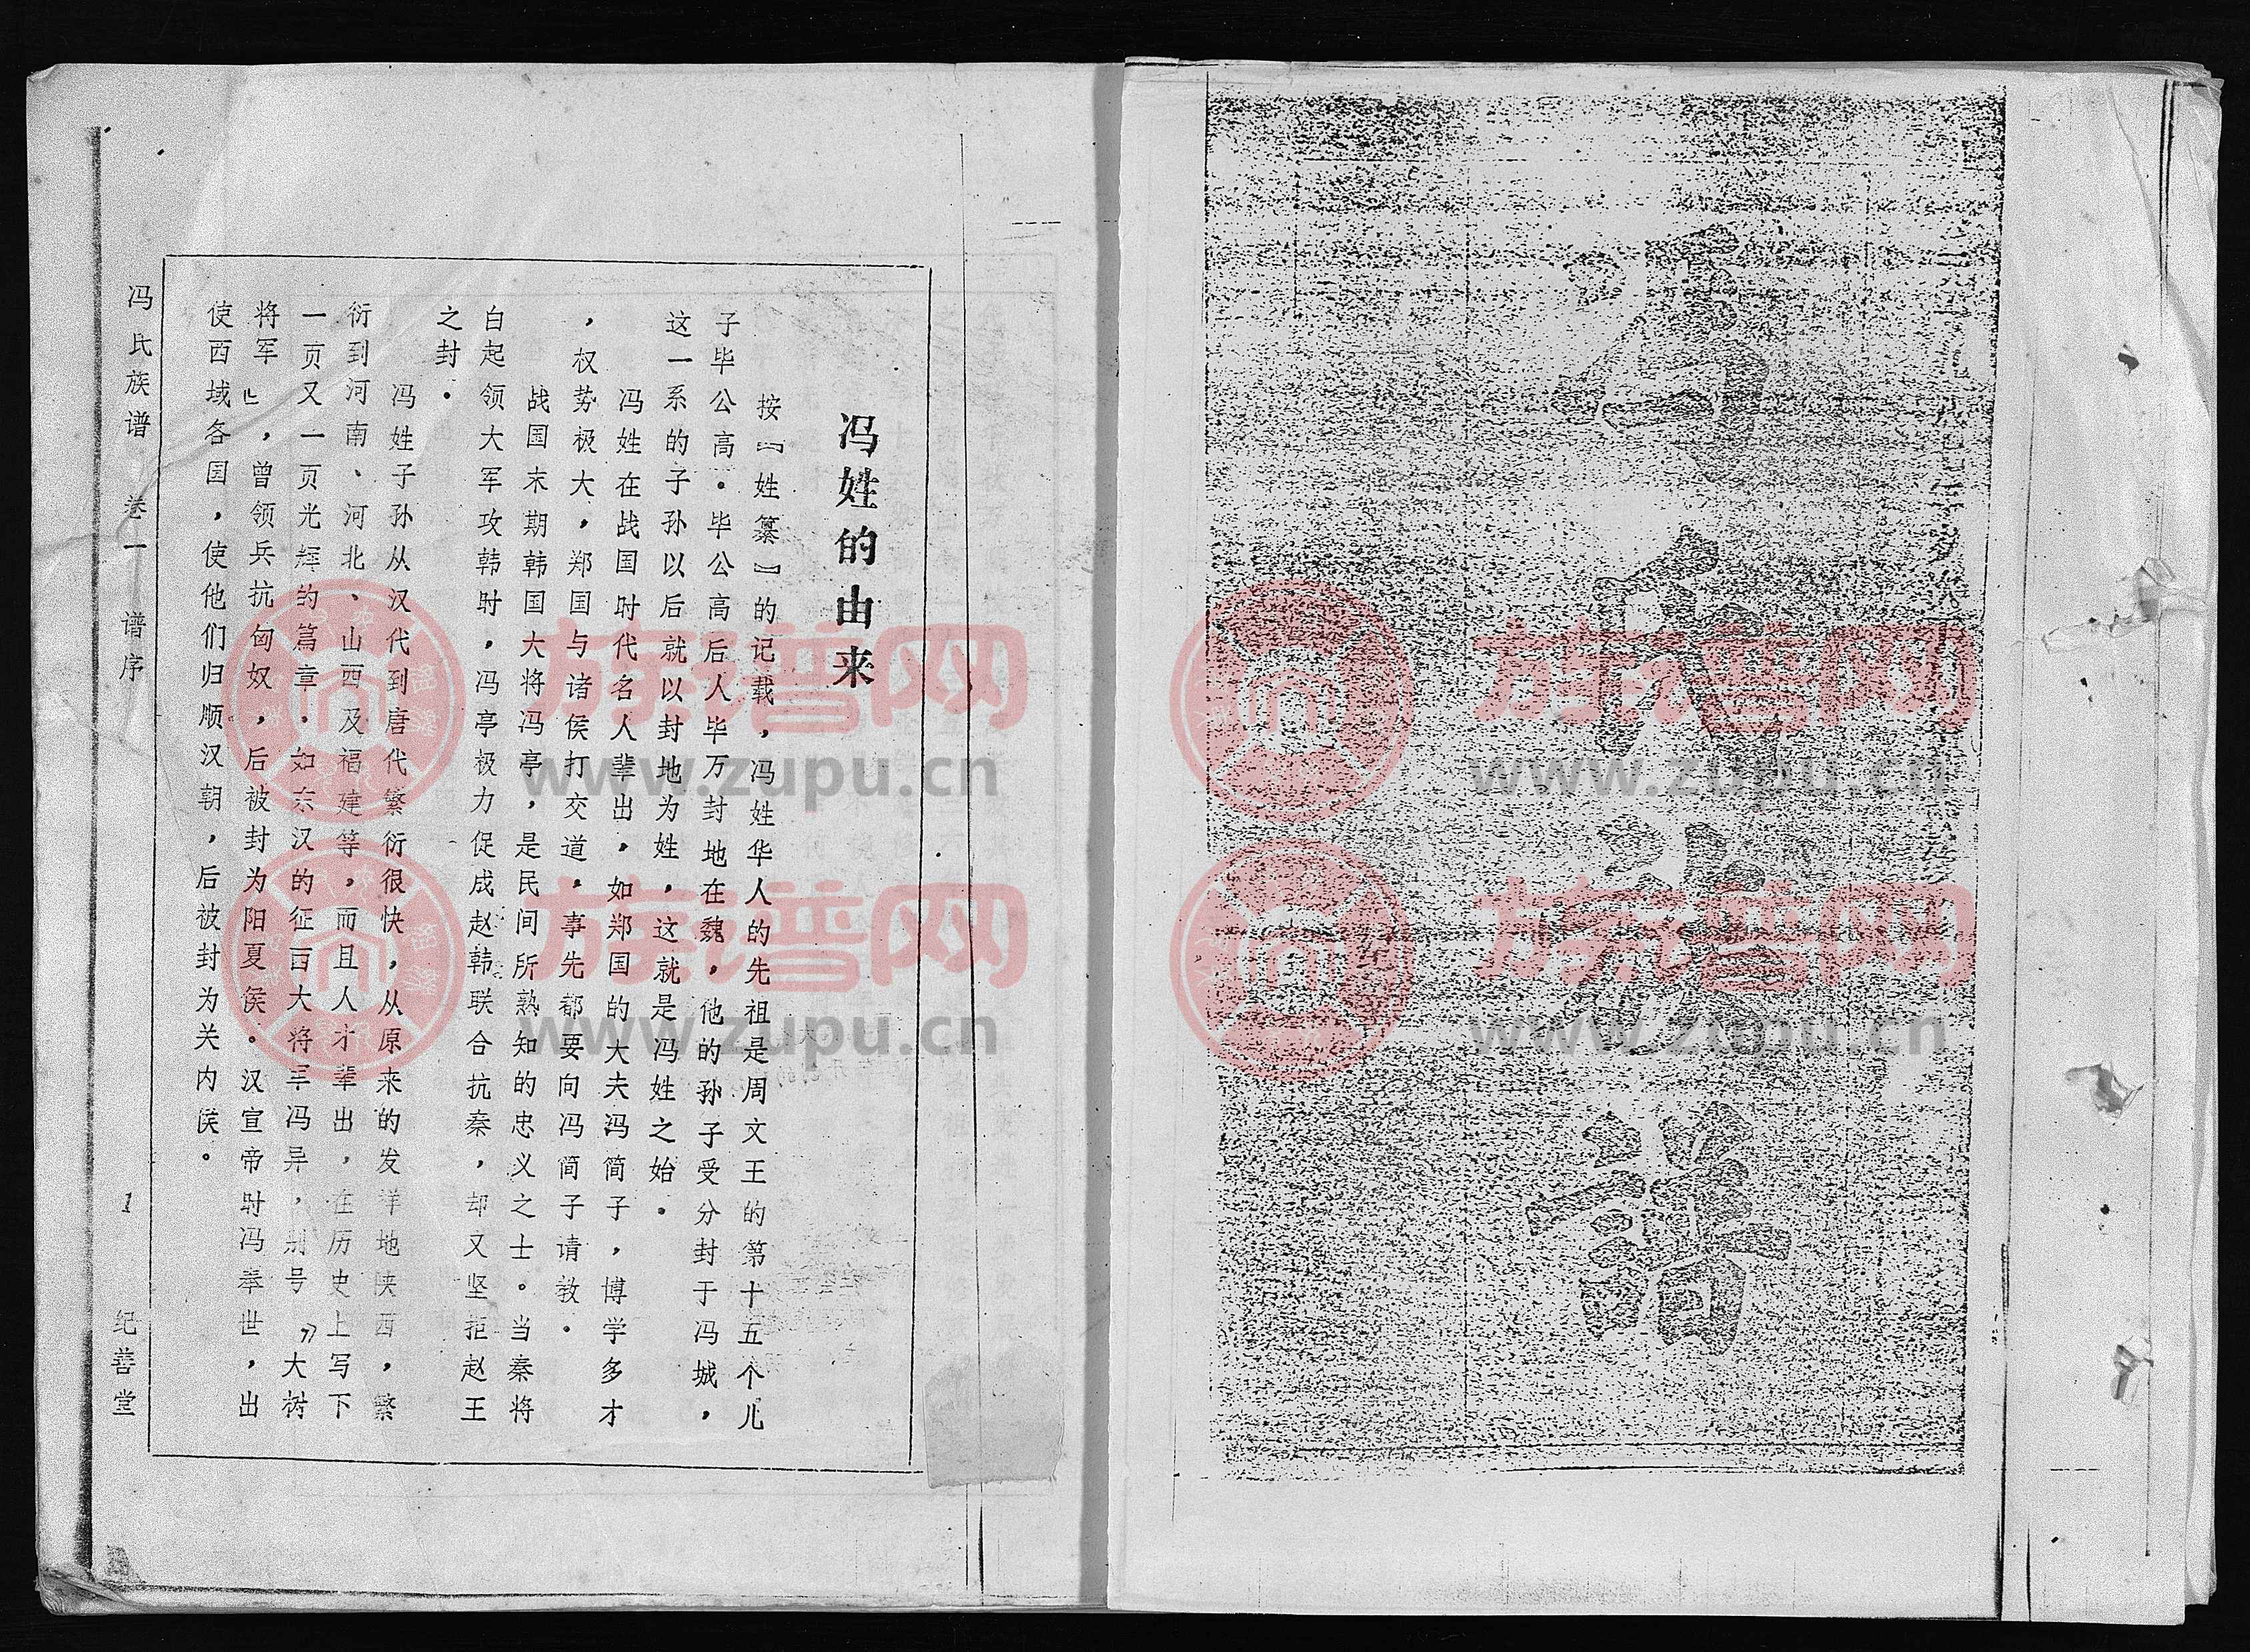 馮氏族譜
冯姓的由来
按『姓纂』的记载，冯姓华人的先祖是周文王的第十五个儿
子毕公高．毕公高后人毕万封地在魏，他的孙子受分封于冯城，
这一系的子孙以后就以封地为姓，这就是冯姓之始．
冯姓在战国时代名人辈出，如郑国的大夫冯简子，博学多才
，权势极大，郑国与诸侯打交道，事先都要向冯简子请教．
战国末期韩国大将冯亭，是民间所熟知的忠义之士。当秦将
白起领大军攻韩时，冯亭极力促成赵韩联合抗秦，却又坚拒赵王
之封．
冯姓子孙从汉代到唐代繁衍很快，从原来的发洋地陕西，繁
衍到河南、河北、山西及福建等，而且人才辈出，在历史上写下
一页又一页光辉的篇章．如东汉的征西大将军冯异，别号『大树
将军』，曾领兵抗匈奴，后被封为阳夏侯．汉宣帝时冯奉世，出
使西域各国，使他们归顺汉朝，后被封为关内侯。
冯氏族谱 卷一 谱序 1 纪善堂
族谱网
www.zupu.cn
族谱网
www.zupu.cn
族谱网
www.zupu.cn
族谱网
www.zupu.cn